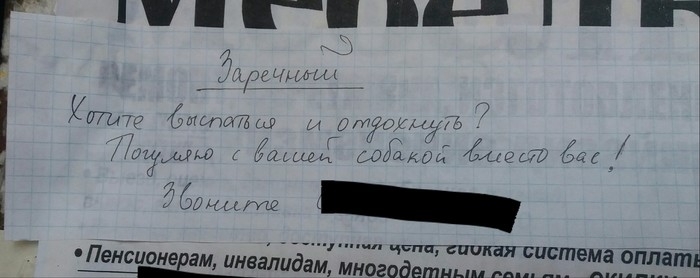 Заречный
Хотите выспаться и отдохнуть?
Погуляю с вашей собакой вместо вас!
Звоните
цена, гибкая система оплаты
• Пенсионерам, инвалидам, многодетным семьям